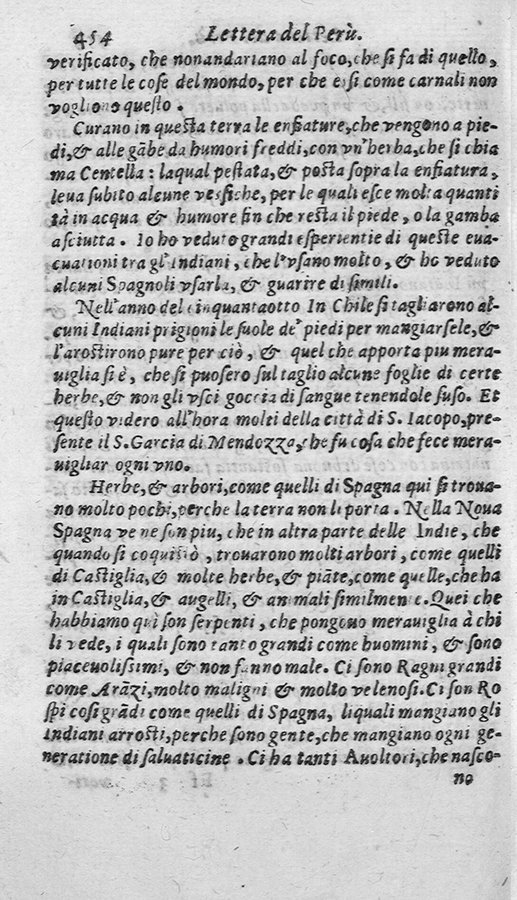 454 Lettera del Perù.
verificato, che non andariano al foco, che si fa di quello,
per tutte le cose del mondo, per che essi come carnali non
vogliono questo.
Curano in questa terra le enfiature, che vengono a pie-
di, & alle gābe da humori freddi, con vn'herba, che si chia
ma Centella: laqual pestata, & posta sopra la enfiatura,
leua subito alcune vessiche, per le quali esce molta quanti
tà in acqua & humore fin che resta il piede, o la gamba
asciutta. Io ho veduto grandi esperientie di queste eua-
cuationi tra gl'Indiani, che l'vsano molto, & ho veduto
alcuni Spagnoli vsarla, & guarire di simili.
Nell'anno del cinquantaotto In Chile si tagliarono al-
cuni Indiani prigioni le suole de' piedi per mangiarsele, &
l'arostirono pure per ciò, & quel che apporta piu mera-
uiglia si è, che si puosero sul taglio alcune foglie di certe
herbe, & non gli vsci goccia di sangue tenendole suso. Et
questo videro all'hora molti della città di S. Iacopo, pre-
sente il S. Garcia di Mendozza, che fu cosa che fece mera-
uigliar ogni vno.
Herbe, & arbori, come quelli di Spagna qui si troua-
no molto pochi, perche la terra non li porta. Nella Noua
Spagna ve ne son piu, che in altra parte delle Indie, che
quando si cōquistò, trouarono molti arbori, come quelli
di Castiglia, & molte herbe, & piāte, come quelle, che ha
in Castiglia, & augelli, & animali similmente. Quei che
habbiamo qui son serpenti, che pongono merauiglia à chi
li vede, i quali sono tanto grandi come huomini, & sono
piaceuolissimi, & non fanno male. Ci sono Ragni grandi
come Arāzi, molto maligni & molto velenosi. Ci son Ro
spi cosi grādi come quelli di Spagna, liquali mangiano gli
Indiani arrosti, perche sono gente, che mangiano ogni ge-
neratione di saluaticine. Ci ha tanti Auoltori, che nasco-
no